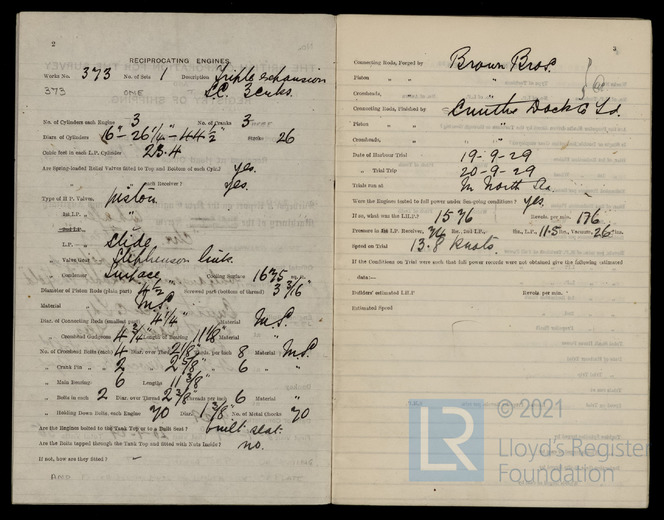 2
RECIPROCATING ENGINES.
Works No. 373 No. of Sets 1 Description Triple expansion
373 ONE S.C. 3 cnks.
No. of Cylinders each Engine 3 No. of Cranks 3
Diars of Cylinders 16" - 26 1/4" - 44 1/2" Stroke 26
Cubic feet in each L.P. Cylinder 23.4
Are Spring-loaded Relief Valves fitted to Top and Bottom of each Cylr.? yes.
each Receiver? yes.
Type of H.P. Valves, piston
1st I.P. " "
2nd I.P. "
L.P. " slide
" Valve Gear Stephenson link.
" Condenser Surface Cooling Surface 1635 sq. ft.
Diameter of Piston Rods (plain part) 4 1/2 Screwed part (bottom of thread) 3 3/16"
Material M.S.
Diar. of Connecting Rods (smallest part) 4 1/4" Material M.S.
Crosshead Gudgeons 4 3/4" Length of Bearing Material M.S.
No. of Crosshead Bolts (each) 4 Diar. over Thrd. 2 1/8" Thrds. per inch 8 Material M.S.
" Crank Pin " " 2 " 2 5/8" " 6 "
" Main Bearings 6 Lengths 11 3/8"
" Bolts in each 2 Diar. over Thread 2 3/8 Threads per inch 6 Material "
" Holding Down Bolts, each Engine 70 Diar. 1 3/8" No. of Metal Chocks 70
Are the Engines bolted to the Tank Top or to a Built Seat? built seat.
Are the Bolts tapped through the Tank Top and fitted with Nuts Inside? no.
If not, how are they fitted? -
3
Connecting Rods, Forged by Brown Bros.
Piston " " "
Crossheads, " "
Connecting Rods, Finished by Smiths Dock Co Ld.
Piston " " "
Crossheads, " "
Date of Harbour Trial 19-9-29
" Trial Trip 20-9-29
Trials run at In North Sea.
Were the Engines tested to full power under Sea-going conditions? yes.
If so, what was the I.H.P.? 1576 Revols. per min. 176
Pressure in 1st I.P. Receiver, 74 lbs., 2nd I.P., lbs., L.P., 11.5 lbs., Vacuum, 26 ins.
Speed on Trial 13.8 knots.
If the Conditions on Trial were such that full power records were not obtained give the following estimated
data:—
Builders' estimated I.H.P. Revols. per min.
Estimated Speed
LR
© 2021
Lloyd's Register
Foundation